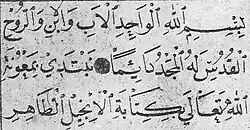 بسم الله الواحد الاب وابن والروح
القدس له المجد دائما نبتدي بمعونة
الله تعالى بكتابة الانجيل الطاهر